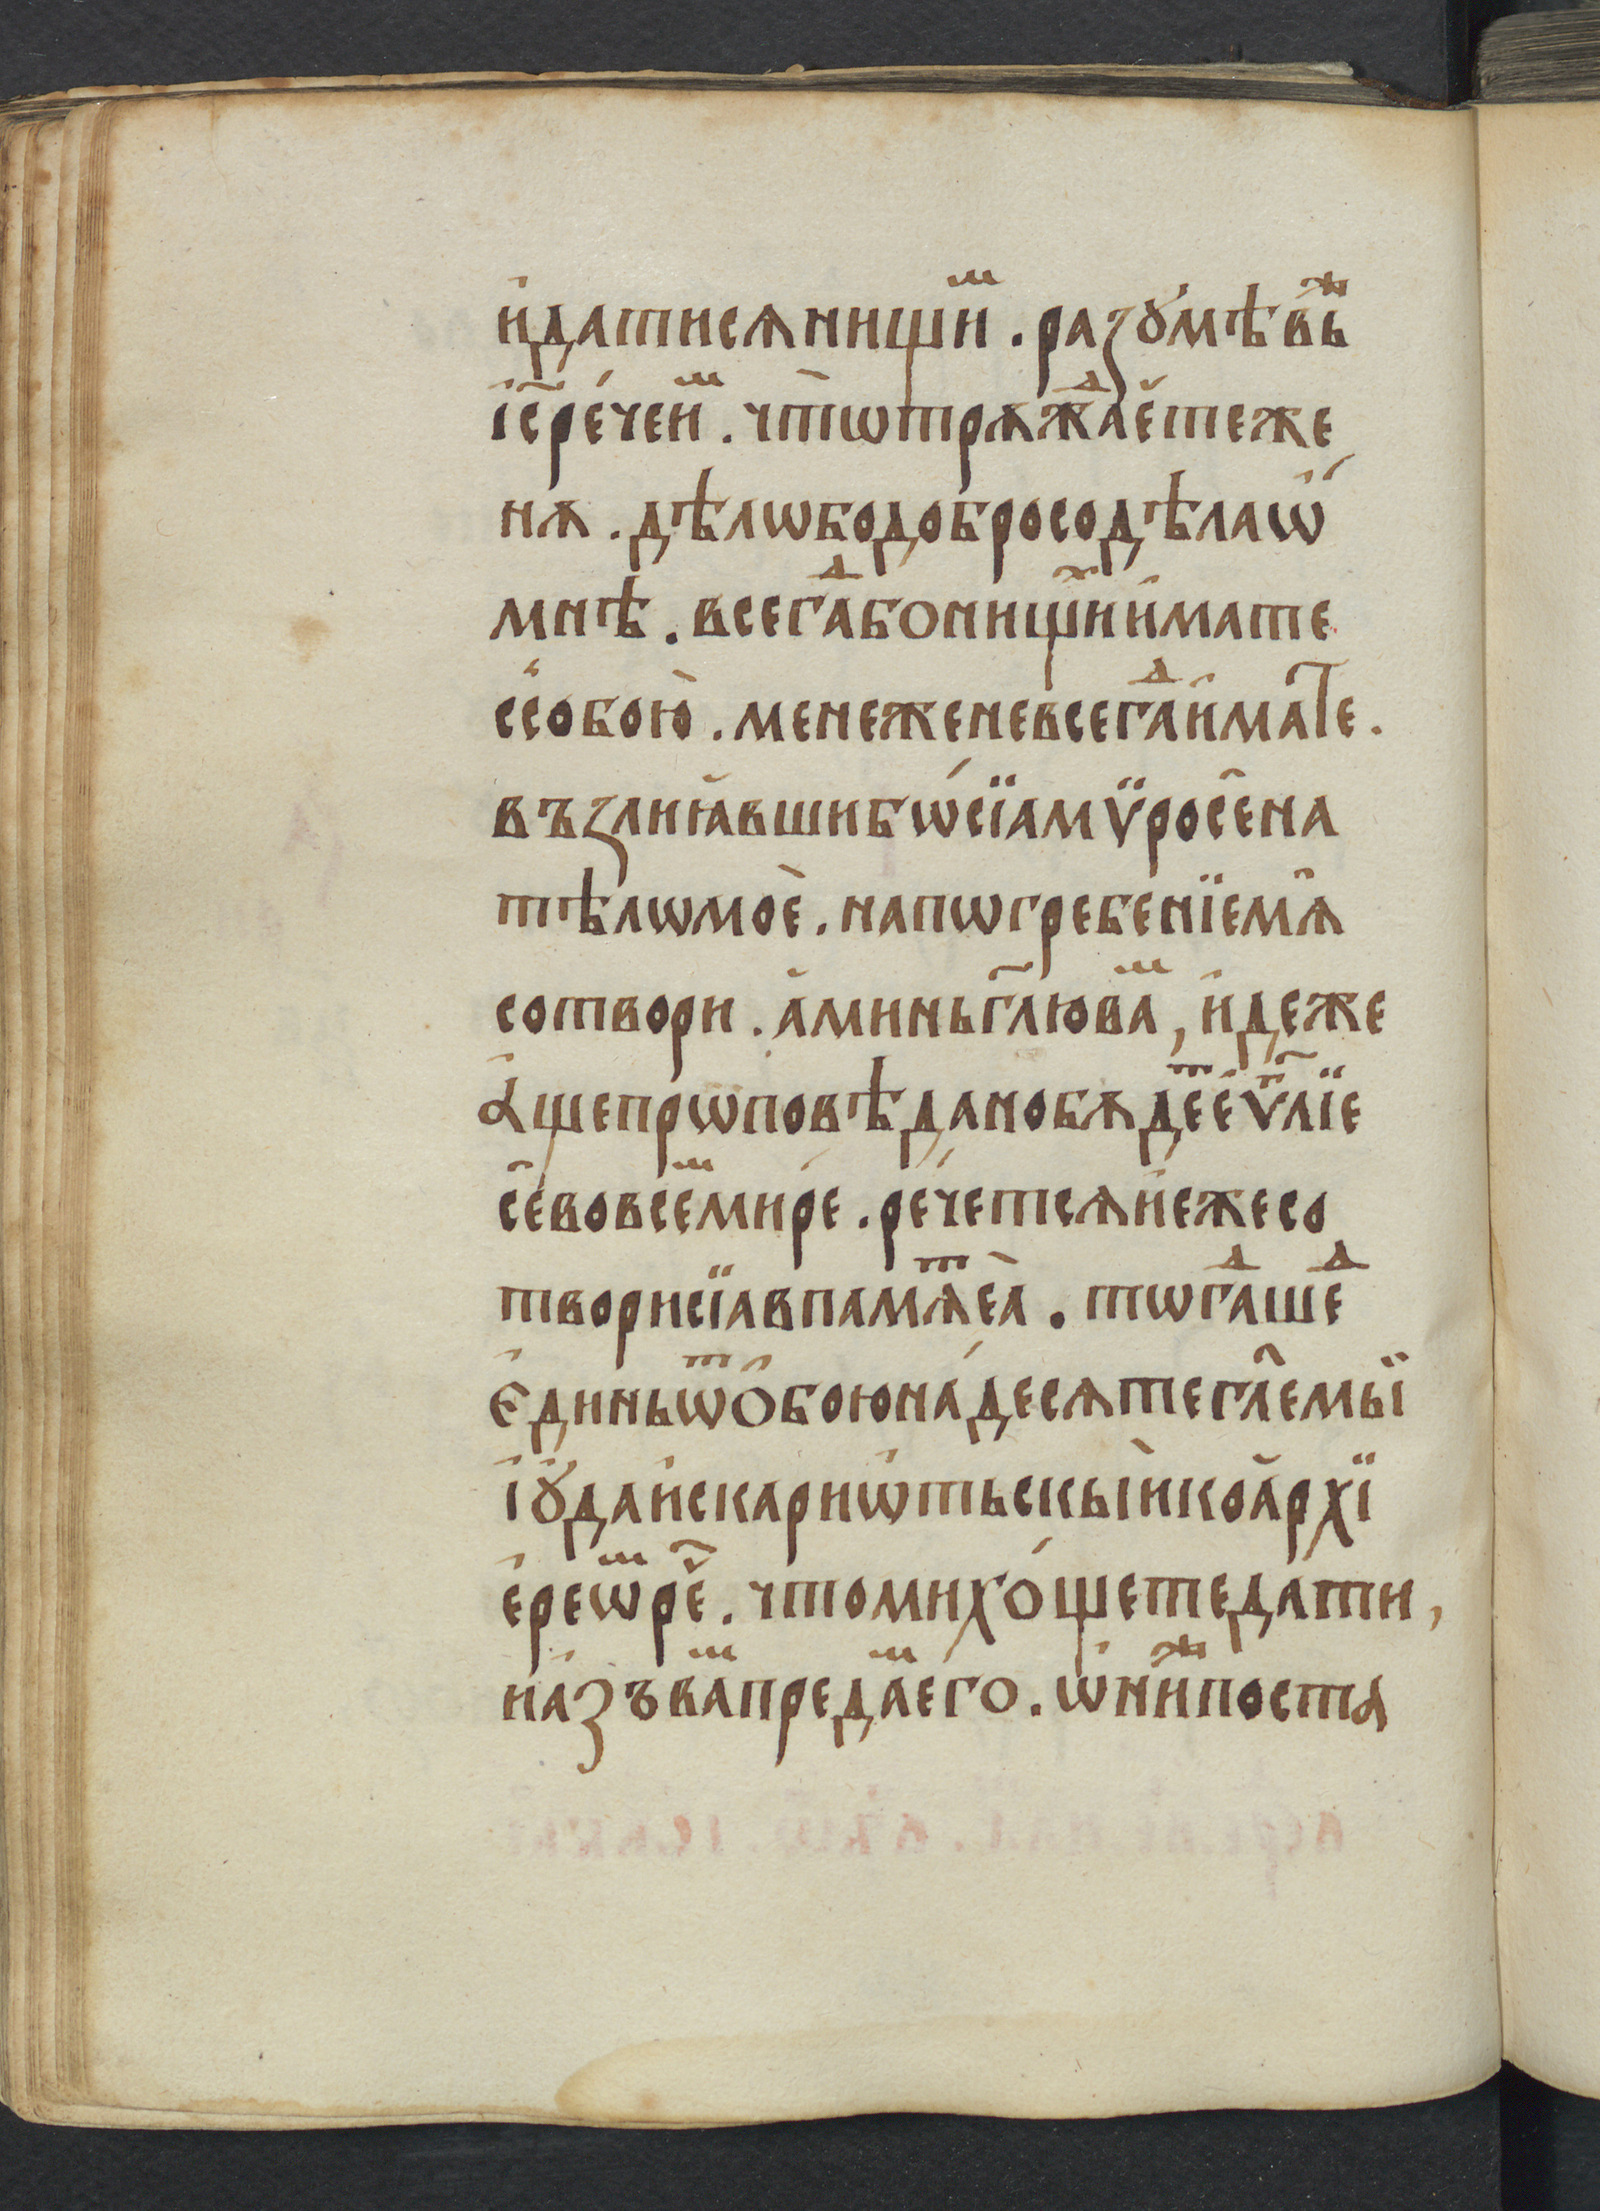 и҆датисѧнищиⷨ҇. разꙋмѣвьⷤ
і҆с҃ре́чеиⷨ. что̀ѡтрѧжⷣае҆теже
нѧ. дѣлѡбодобросодѣлаѡ҆́
мнѣ. всегⷣабонищиⷯи҆мате
ссобою̀. менеженевсегⷣаи҆мате.
възлиꙗ҆вшибѡ́сїамѵ̈росена
тѣлѡмоѐ. напѡгребенїемѧ̑
сотвори. а҆миньгл҃ювⷨа, и҆деже
а҆щепрѡповѣданобѧдеⷮе҆ѵⷢ҇лїе
се҆вовсеⷨми́ре. рече́тсѧи҆ежесо
творисїавпамѧⷮеа̀. тѡгⷣашеⷣ
е҆диньѿѻ҆боюна́десѧтегл҃емыї
і҆ꙋ҆даи҆скариѡ҆тьскыи҆коа҆рхї
е҆реѡⷨре҃. чтомихо́щетеда́ти,
иа҆зъвⷨапредаⷨего. ѡ҆ниⷤпоста